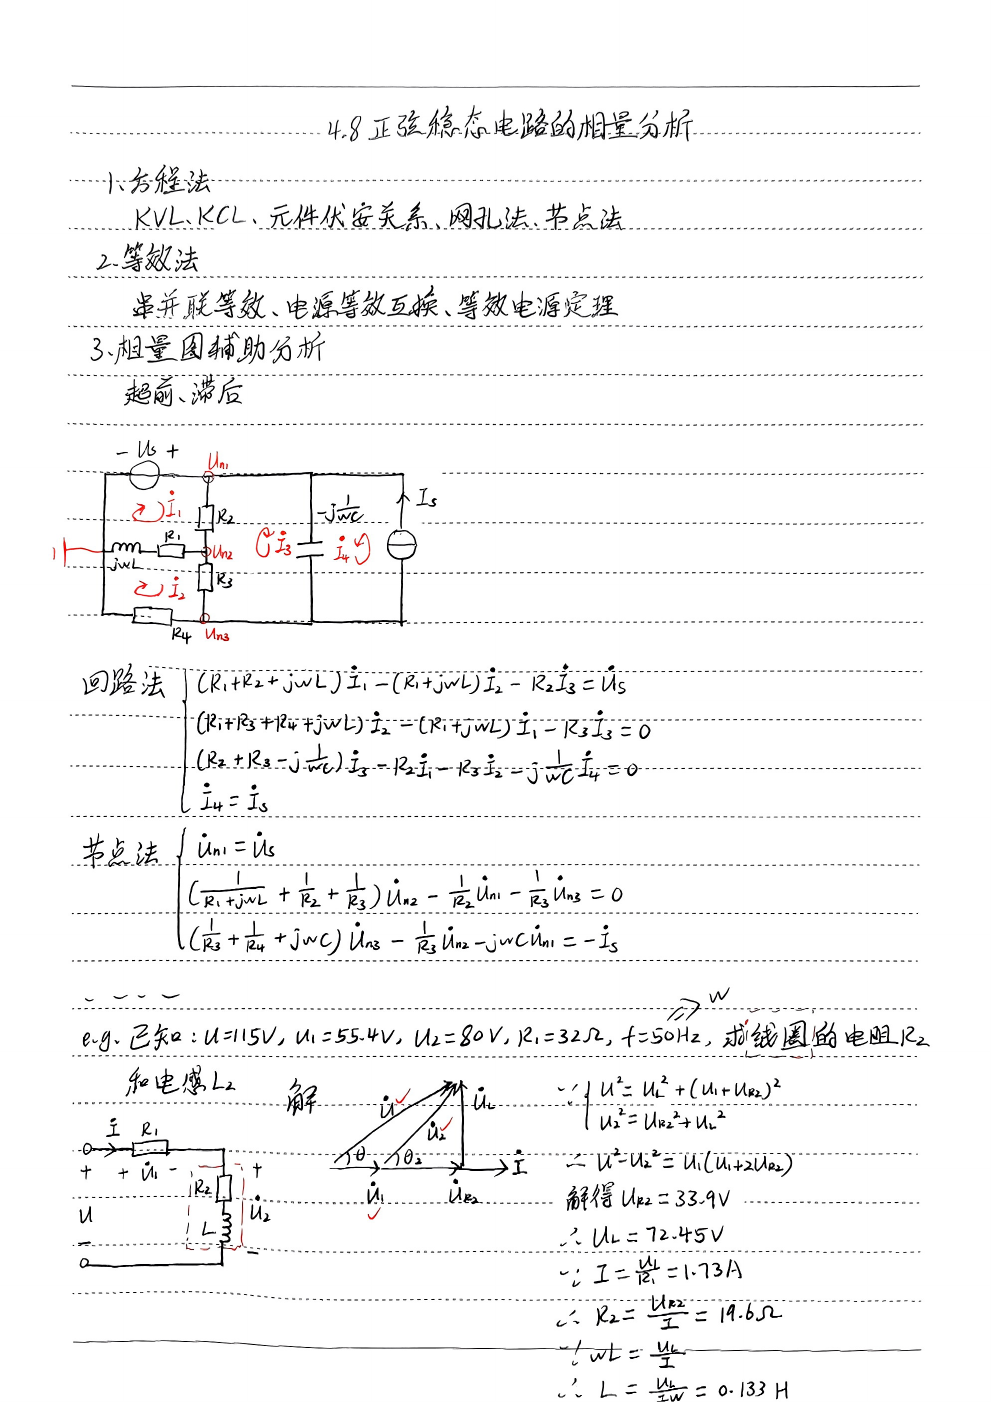 4.8 正弦稳态电路的相量分析
1、方程法
KVL、KCL、元件伏安关系、网孔法、节点法
2.等效法
串并联等效、电源等效互换、等效电源定理
3、相量图辅助分析
超前、滞后
- Us +
Un1
İ1
R2
-j1/wC
Is
R1
jwL
Un2
İ3
İ4
R3
İ2
R4
Un3
回路法
(R1+R2+jwL)İ1-(R1+jwL)İ2-R2İ3=U̇s
(R1+R3+R4+jwL)İ2-(R1+jwL)İ1-R3İ3=0
(R2+R3-j1/wC)İ3-R2İ1-R3İ2-j1/wCİ4=0
İ4=İs
节点法
U̇n1=U̇s
(1/(R1+jwL)+1/R2+1/R3)U̇n2-1/R2U̇n1-1/R3U̇n3=0
(1/R3+1/R4+jwC)U̇n3-1/R3U̇n2-jwCU̇n1=-İs
W
e.g. 已知:U=115V, U1=55.4V, U2=80V, R1=32Ω, f=50Hz, 求线圈的电阻R2
和电感L2
解
İ
R1
+ U̇1 -
+
U
-
R2
L
+
U̇2
-
U̇
U̇L
U̇2
θ
θ2
İ
U̇1
U̇R2
∵ U²=UL²+(U1+UR2)²
U2²=UR2²+UL²
∴ U²-U2²=U1(U1+2UR2)
解得 UR2=33.9V
∴ UL=72.45V
∵ I=U1/R1=1.73A
∴ R2=UR2/I=19.6Ω
∵ wL=UL/I
∴ L=UL/IW=0.133H